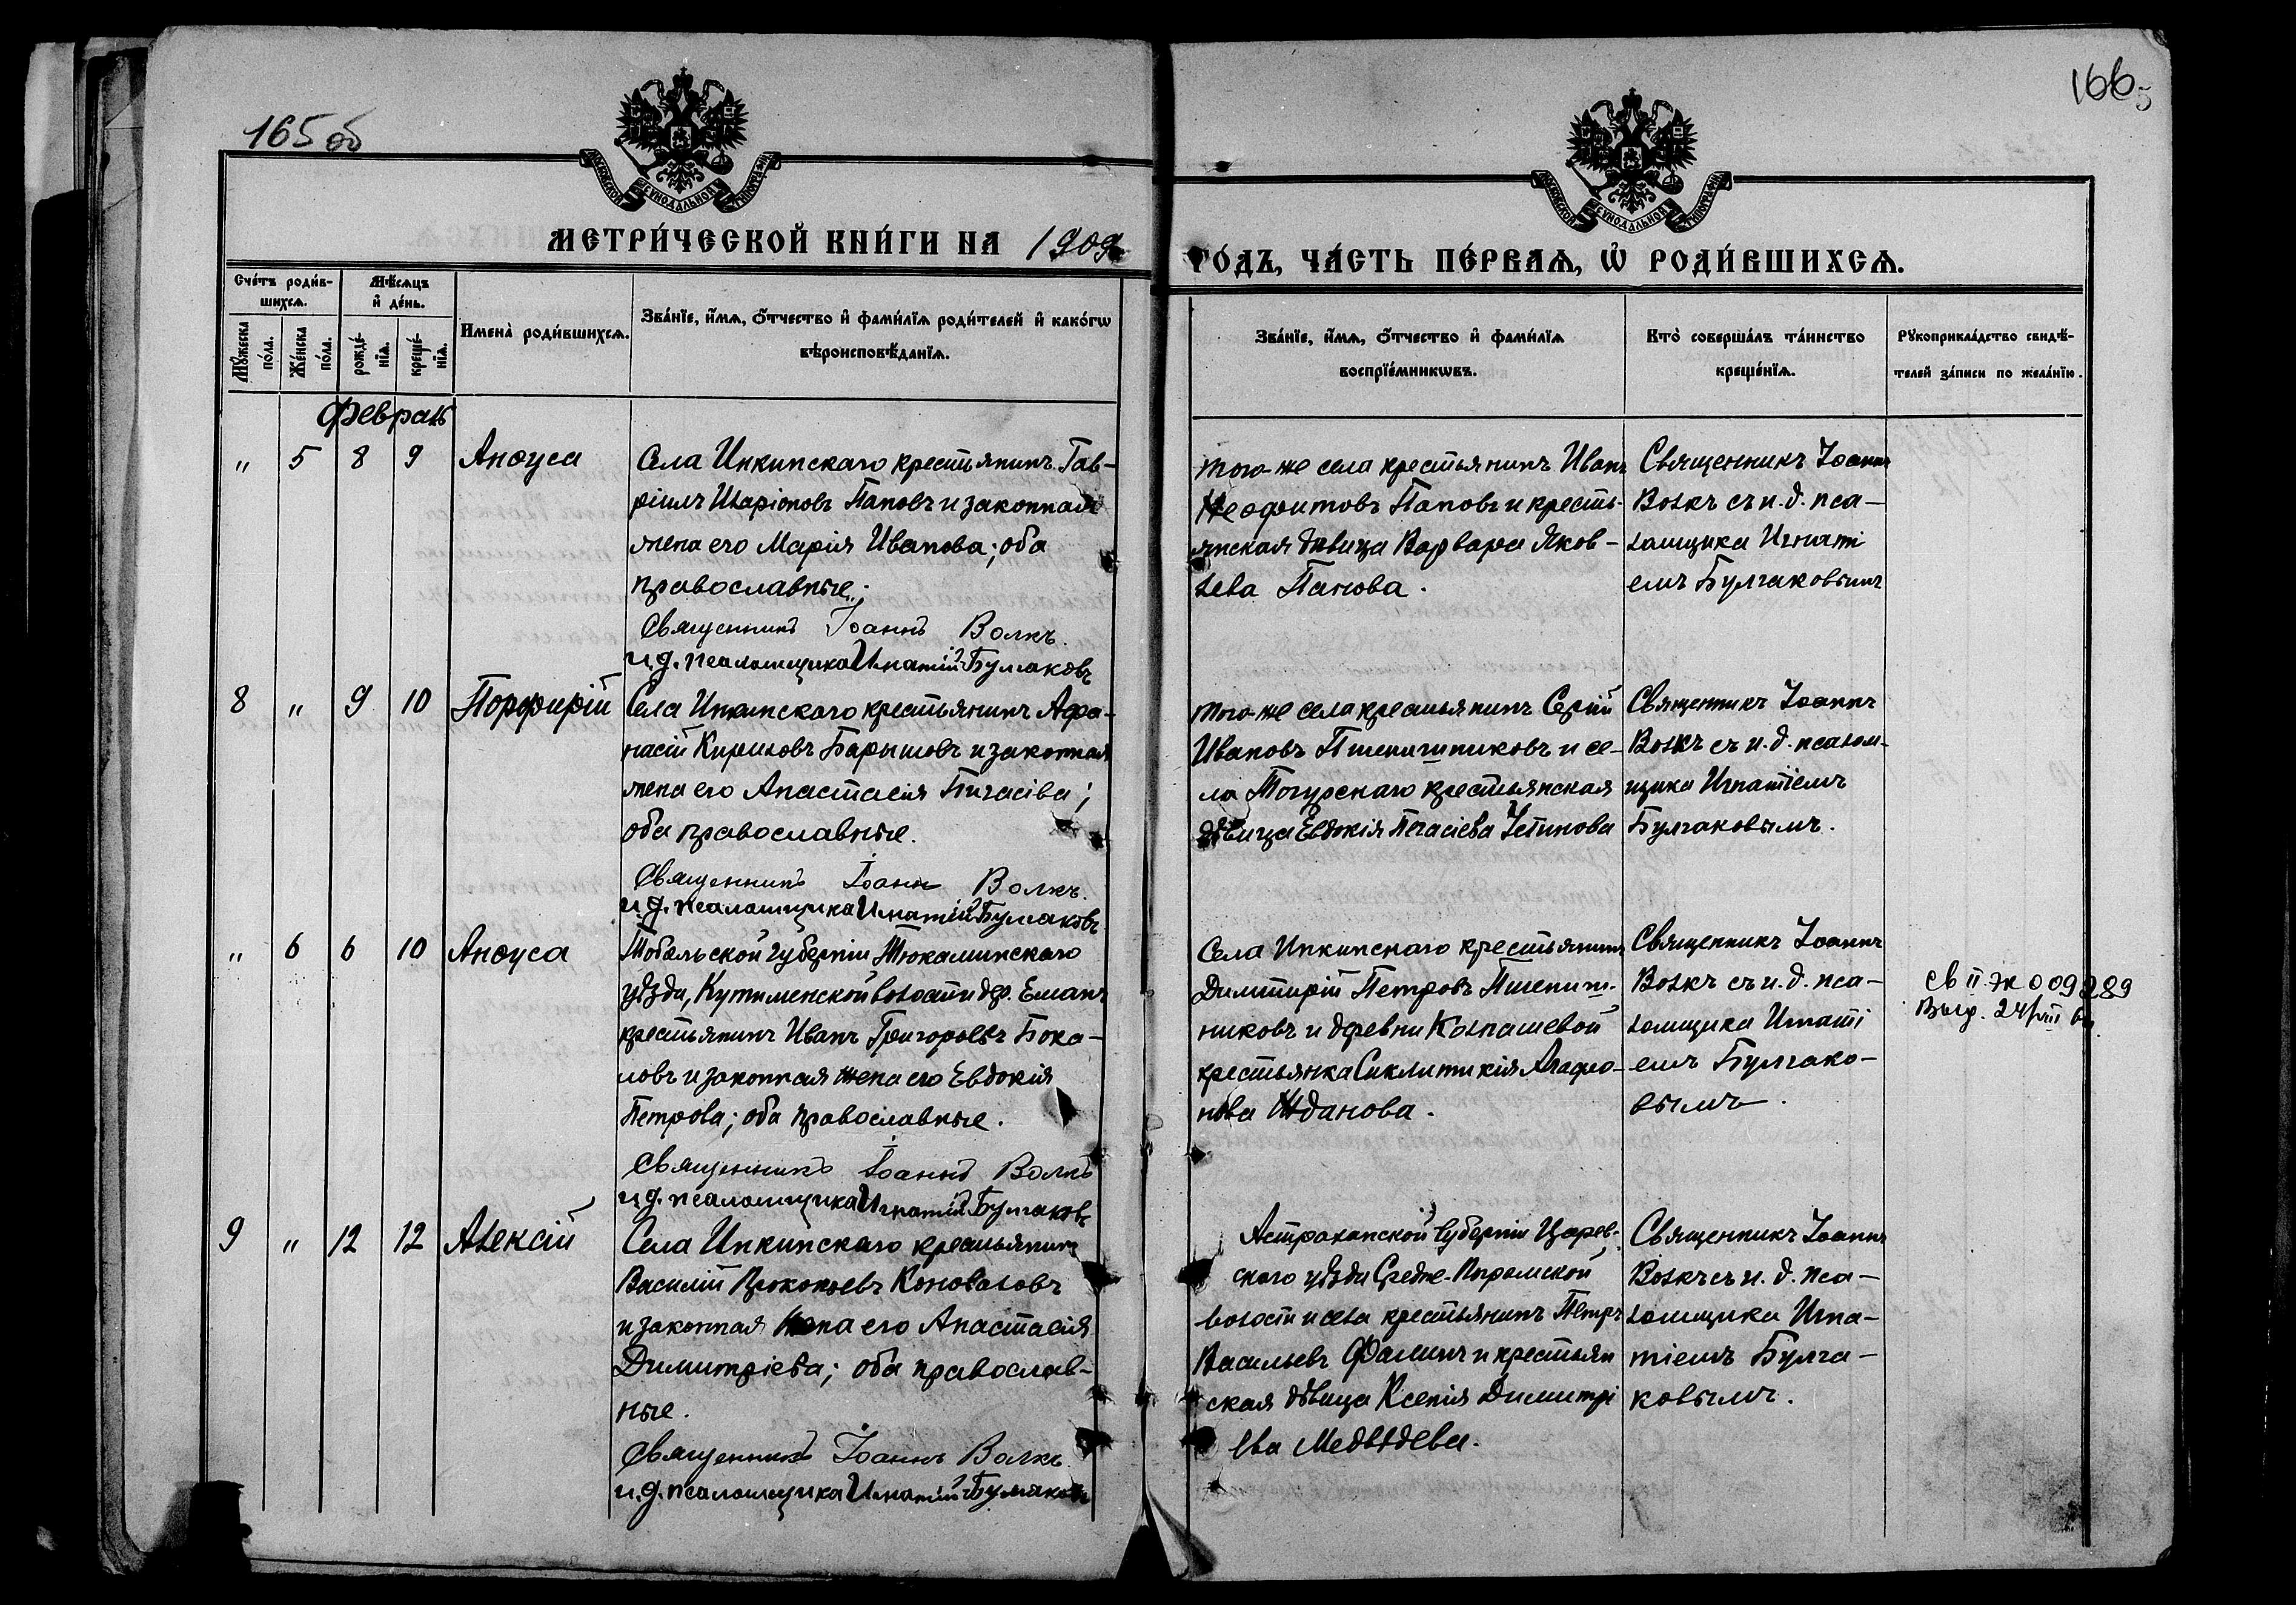 165 об
166
МОСКОВСКОЙ СѴНОДАЛЬНОЙ ТИПОГРАФІИ
МОСКОВСКОЙ СѴНОДАЛЬНОЙ ТИПОГРАФІИ
МЕТРИ́ЧЕСКОЙ КНИ́ГИ НА 1909
ГО́ДЪ, ЧА́СТЬ ПЕ́РВАѦ, Ѡ҆ РОДИ́ВШИХСѦ.
Сче́тъ роди́в-
шихсѧ.
Мѣ́сѧцъ
и҆ де́нь.
Мꙋ́жеска
по́ла.
Же́нска
по́ла.
рожде́-
нїѧ.
креще́-
нїѧ.
Имена̀ роди́вшихсѧ.
Зва́нїе, и҆́мѧ, ѻ҆́тчество и҆ фами́лїѧ роди́телей и҆ како́гѡ
вѣроисповѣ́данїѧ.
Зва́нїе, и҆́мѧ, ѻ҆́тчество и҆ фами́лїѧ
воспрїе́мникѡвъ.
Кто̀ соверша́лъ та́инство
креще́нїѧ.
Рꙋкоприкла́дство свидѣ́-
телей за́писи по жела́нїю.
Февраль
" 5 8 9 Анѳуса
Села Инкинскаго крестьянинъ Гав-
ріилъ Иларіоновъ Пановъ и законная
жена его Марія Иванова; оба
православные.
Священникъ Іоаннъ Волкъ.
и.д. псаломщика Игнатій Булгаковъ
того-же села крестьянинъ Иванъ
Неофитовъ Пановъ и кресть-
янская дѣвица Варвара Яков-
лева Панова.
Священникъ Іоаннъ
Волкъ съ и.д. пса-
ломщика Игнаті
емъ Булгаковымъ
8 " 9 10 Порфирій
Села Инкинскаго крестьянинъ Афа-
насій Кириловъ Барышовъ и законная
жена его Анастасія Пигасіева;
оба православные.
Священникъ Іоаннъ Волкъ.
и.д. псаломщика Игнатій Булгаковъ
того-же села крестьянинъ Сергій
Ивановъ Пшеничниковъ и се-
ла Тогурскаго крестьянская
дѣвица Евдокія Пегасіева Устинова
Священникъ Іоаннъ
Волкъ съ и.д. псалом-
щика Игнатіемъ
Булгаковымъ.
" 6 6 10 Анѳуса
Тобольской губерніи Тюкалинскаго
уѣзда, Кутименской волости дер. Еланч
крестьянинъ Иванъ Григорьевъ Бока-
ловъ и законная жена его Евдокія
Петрова; оба православные.
Священникъ Іоаннъ Волкъ
и.д. псаломщика Игнатій Булгаковъ
Села Инкинскаго крестьянинъ
Димитрій Петровъ Пшенич-
никовъ и деревни Колпашевой
крестьянка Синклитикія Агафо-
нова Жданова.
Священникъ Іоаннъ
Волкъ съ и.д. пса-
ломщика Игнаті
емъ Булгако-
вымъ.
св II-ж 009289
Выд. 24/VIII
9 " 12 12 Алексій
Села Инкинскаго крестьянинъ
Василій Прокопьевъ Коноваловъ
и законная жена его Анастасія
Димитріева; оба православ-
ные.
Священникъ Іоаннъ Волкъ
и.д. псаломщика Игнатій Булгаковъ
Астраханской губерніи Царев-
скаго уѣзда Средне-Погромской
волости и села крестьянинъ Петръ
Васильевъ Фоминъ и крестьян
ская дѣвица Ксенія Димитрі
ева Медвѣдева.
Священникъ Іоаннъ
Волкъ съ и.д. пса-
ломщика Игна-
тіемъ Булга-
ковымъ.